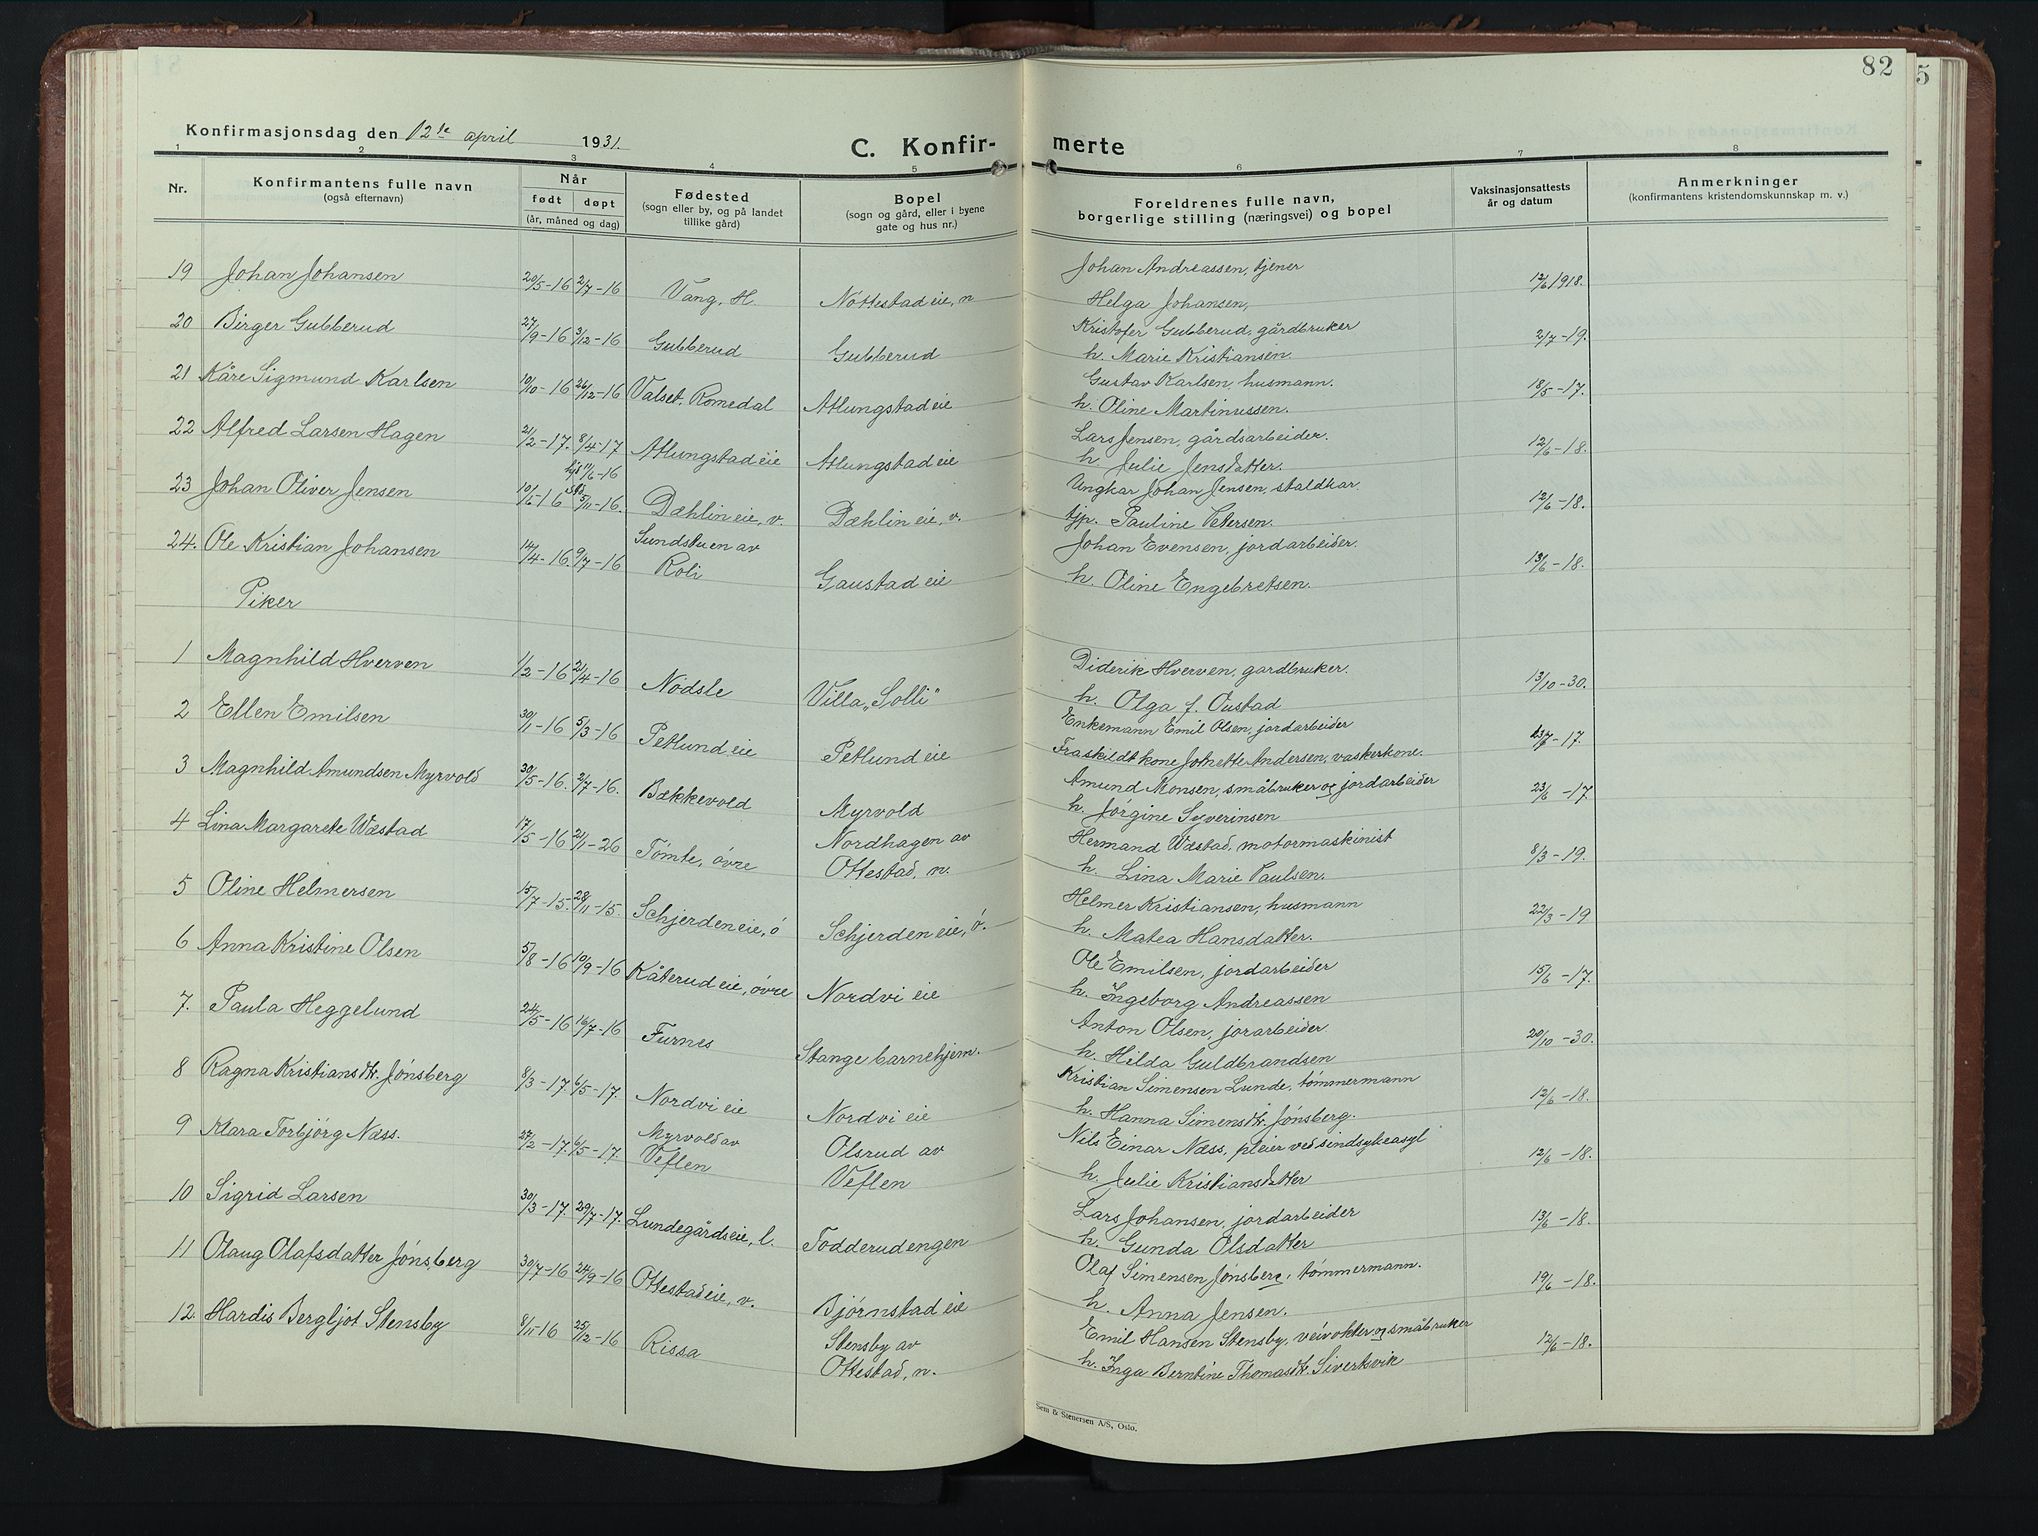 82
Konfirmasjonsdag den 12te april 1931.
C. Konfirmerte
1 2 3 4 5 6 7 8
Nr.
Konfirmantens fulle navn
(også efternavn)
Når
født døpt
(år, måned og dag)
Fødested
(sogn eller by, og på landet
tillike gård)
Bopel
(sogn og gård, eller i byene
gate og hus nr.)
Foreldrenes fulle navn,
borgerlige stilling (næringsvei) og bopel
Vaksinasjonsattests
år og datum
Anmerkninger
(konfirmantens kristendomskunnskap m. v.)
19 Johan Johansen 20/5-16 2/7-16 Vang, H. Nøttestad eie, n Johan Andreassen, tjener 12/6 1918.
Helga Johansen,
20 Birger Gubberud 27/9-16 3/12-16 Gubberud Gubberud Kristofer Gubberud, gårdbruker 2/7-19.
h. Marie Kristiansen.
21 Kåre Sigmund Karlsen 10/10-16 26/12-16 Valset, Romedal Atlungstad eie Gustav Karlsen, husmann. 18/5-17.
h. Oline Martinussen.
22 Alfred Larsen Hagen 21/2-17. 8/4-17 Atlungstad eie Atlungstad eie Lars Jensen, gårdsarbeider. 12/6-18.
h. Julie Jensdatter.
23 Johan Oliver Jensen 10/5-16 hjd 11/6-16 stfd 5/11-16. Dæhlin eie, v. Dæhlin eie, v. Ungkar Johan Jensen, staldkar 12/6-18.
tjp. Pauline Petersen.
24. Ole Kristian Johansen 14/4-16. 9/7-16 Sundstuen av Roli Gaustad eie Johan Evensen, jordarbeider. 13/6-18.
h. Oline Engebretsen.
Piker
1 Magnhild Hverven 1/2-16 21/4-16 Nødsle Villa „Solli" Diderik Hverven, gardbruker. 13/10-30.
h. Olga f. Oustad
2 Ellen Emilsen 30/1-16 5/3-16 Petlund eie Petlund eie Enkemann Emil Olsen, jordarbeider -17.
Fraskildt kone Johnette Andersen, vaskerkone.
3 Magnhild Amundsen Myrvold 30/5-16. 2/7-16. Bækkevold Myrvold Amund Monsen, småbruker og jordarbeider 23/6-17.
h. Jørgine Syverinsen
4 Lina Margarete Wæstad 17/5-16 21/11-26 Tømte, øvre Nordhagen av Ottestad, n. Hermand Wæstad, motormaskinist 8/3-19.
h. Lina Marie Paulsen.
5 Oline Helmersen 15/7-15. 28/11-15. Schjerden eie, ö Schjerden eie, ö. Helmer Kristiansen, husmann 22/3-19
h. Matea Hansdatter.
6 Anna Kristine Olsen 5/8-16 10/9-16 Kåterud eie, øvre Nordvi eie Ole Emilsen, jordarbeider 15/6-17.
h. Ingeborg Andreassen
7. Paula Heggelund 24/5-16 16/7-16 Furnes Stange barnehjem. Anton Olsen, jorarbeider 20/10-30.
h. Hilda Guldbrandsen
8 Ragna Kristiansdtr. Jønsberg 8/3-17. 6/5-17. Nordvi eie Nordvi eie Kristian Simensen Lunde, tømmermann 12/6-18.
h. Hanna Simensdtr. Jønsberg.
9 Klara Torbjörg Næss. 27/2-17. 6/5-17. Myrvold av Veflen Olsrud av Veflen Nils Einar Næss, pleier ved sindsykeasyl 12/6-18.
h. Julie Kristiansdatter
10 Sigrid Larsen 30/3-17. 29/7-17. Lundegårdseie, l. Todderudengen Lars Johansen, jordarbeider 13/6-18.
h. Gunda Olsdatter
11 Olaug Olafsdatter Jønsberg 30/7-16 24/9-16 Ottestad eie, v. Bjørnstad eie Olaf Simensen Jønsberg, tømmermann. 19/6-18.
h. Anna Jensen.
12. Hardis Bergljot Stensby 8/11-16 25/12-16 Rissa Stensby av Ottestad, n. Emil Hansen Stensby, veivokter og småbruker 12/6-18.
h. Inga Berntine Thomasdtr. Sivertsvik
Sem & Stenersen A/S, Oslo.